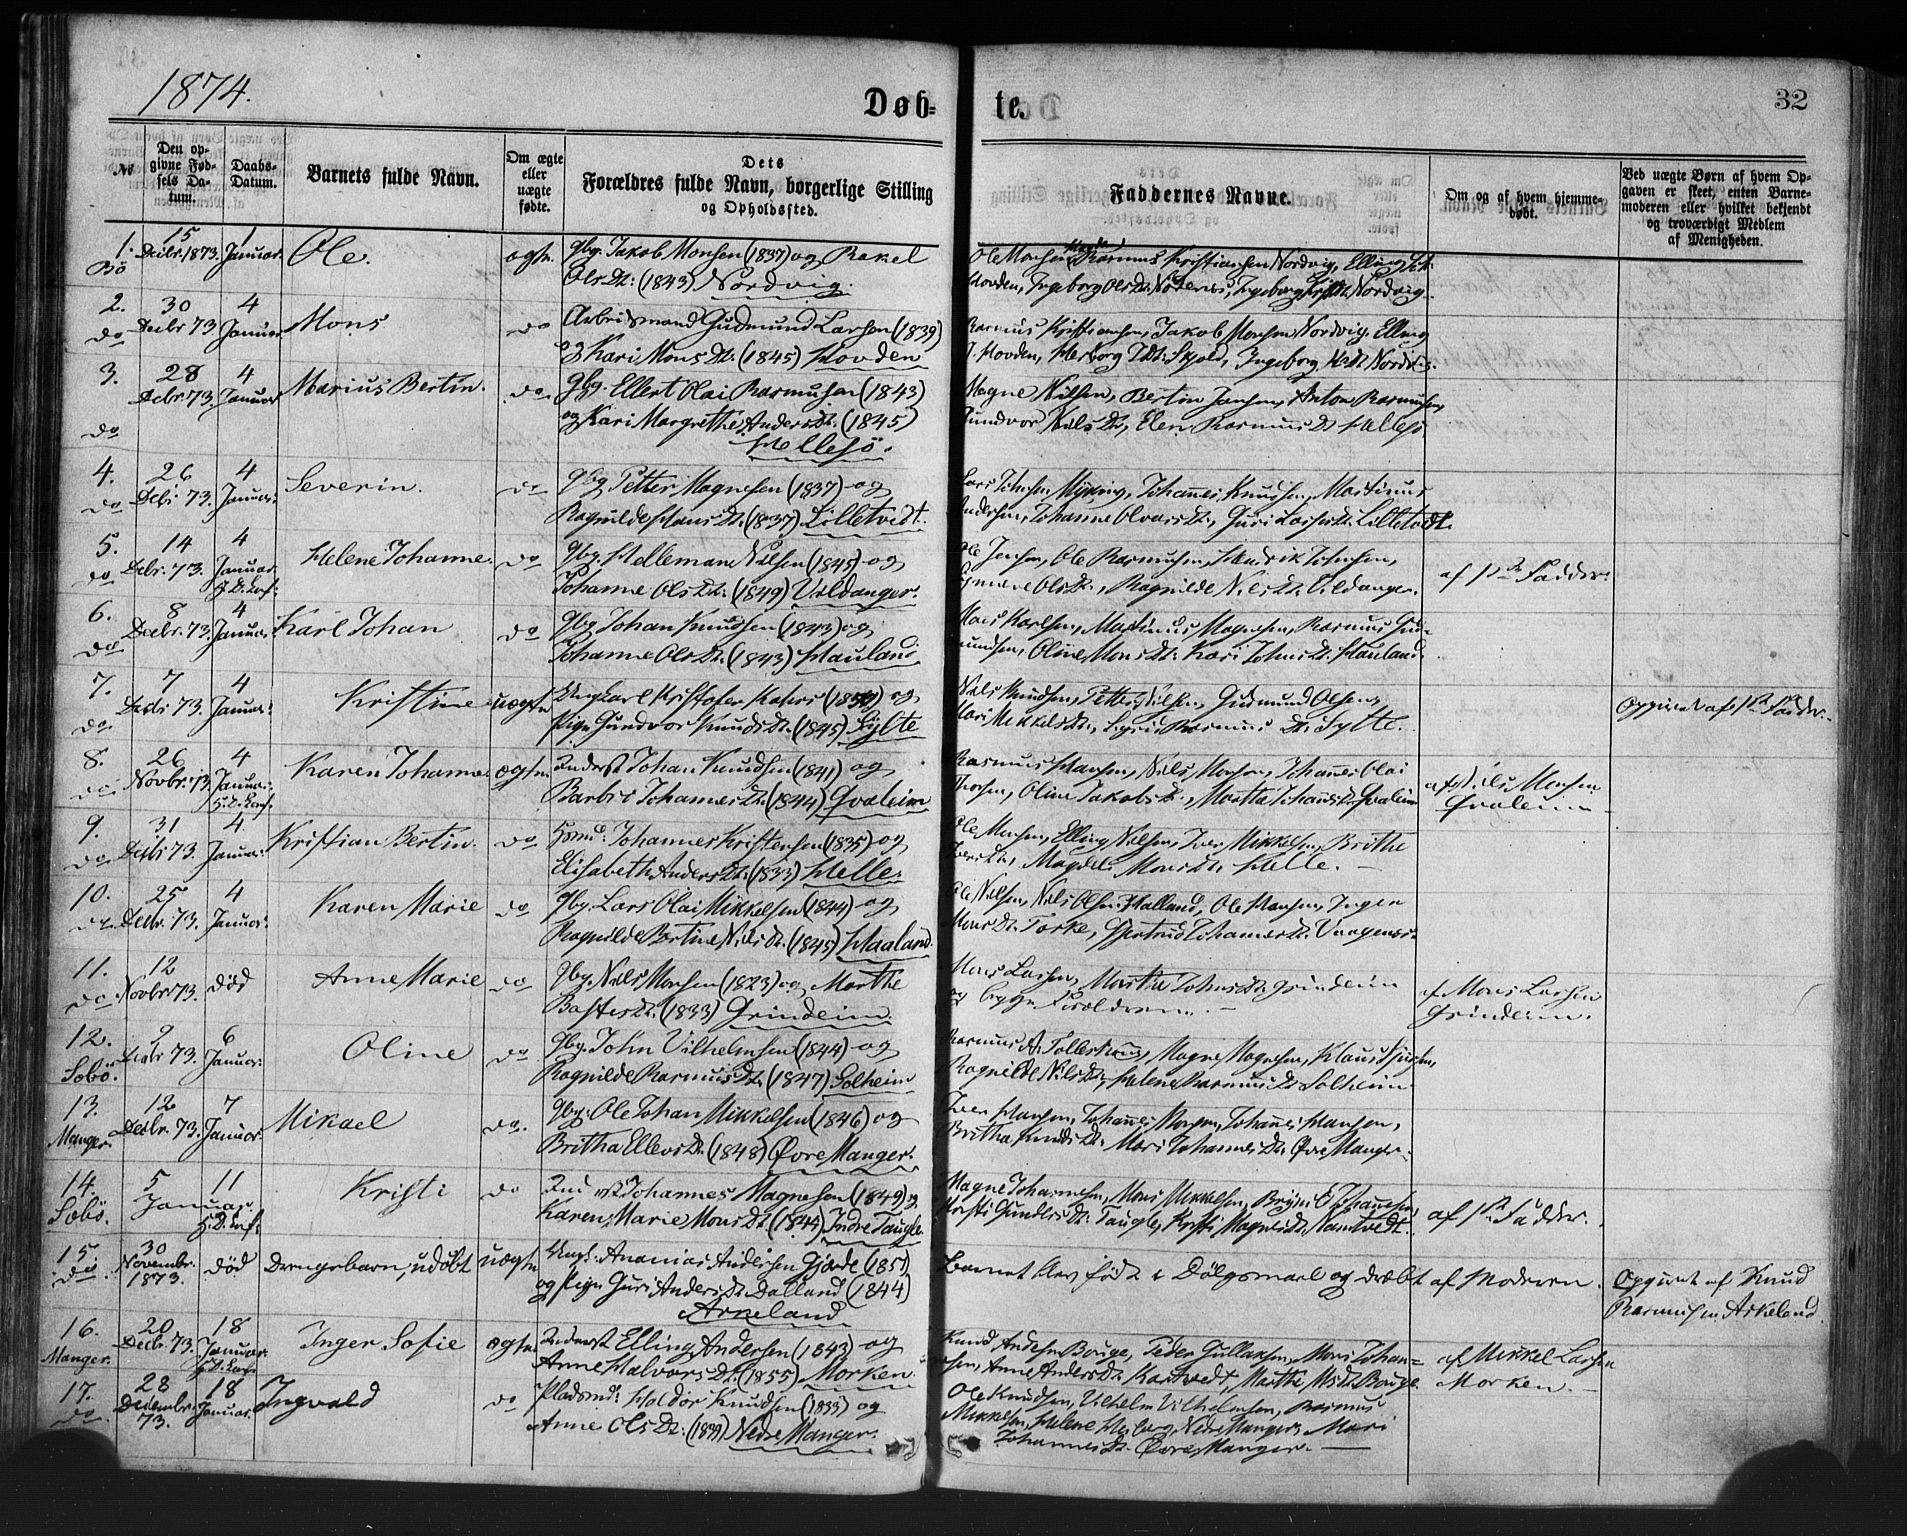 1874.
Døb-
te.
32
№
Den opgivne Fødsels Datum.
Daabs-Datum.
Barnets fulde Navn.
Om ægte eller uægte fødte.
Dets Forældres fulde Navn, borgerlige Stilling og Opholdssted.
Faddernes Navne.
Om og af hvem hjemmedøbt.
Ved uægte Børn af hvem Opgaven er skeet, enten Barnemoderen eller hvilket bekjendt og troværdigt Medlem af Menigheden.
1. 15 1
Bö Decbr. 1873. Januar. Ole. ægte. Gbg. Jakob Monsen (1837) og Rakel
Olsdt: (1843) Nordvig.
Ole Monsen, Rasmus Kristiansen Nordvig, Elling
Hovden, Ingeborg Olsdt. Nordvig.
2. 30 4
do Decbr 73. Januar Mons do Arbeidsmand Gudmund Larsen (1839)
og Kari Monsdt: (1845) Hovden
Rasmus Kristiansen, Jakob Monsen Nordvig, Elling
Hovden, Herborg Skjold, Ingeborg Nordvig.
3. 28 4
Decbr 73. Januar Marius Bertin. do. Gbg. Ellert Olai Rasmusen (1843)
do og Kari Margrethe Andersdt. (1845)
Hellesö.
Magne Nilsen, Bertin Jansen, Anton Rasmusen,
Gundvor Nilsdt, Elen Rasmusdt Hellesö
4. 26 4
do Decbr 73. Januar: Severin. do Gbg Petter Magnesen (1837) og
Ragnilde Hansdt. (1837) Lilletvedt.
Lars Johnsen Myking, Johannes Knudsen, Martinus
Andersen, Johanne Olsdt., Guri Larsdt. Lilletvedt.
5. 14 4
do Decbr. 73. Januar. Helene Johanne. do Gbg. Helleman Nilsen (1845) og
Johanne Olsdt. (1849) Vildanger.
Ole Jensen, Ole Rasmusen, Hendrik Johnsen,
Olsdt., Ragnilde Nilsdt. Vildanger.
af 1ste Fadder.
6. 8 4
do Decbr. 73. Januar. Karl Johan do Gbg Johan Knudsen (1843) og
Johanne Olsdt. (1843) Hauland.
Karlsen, Martinus Magnesen, Rasmus Gud-
mundsen, Oline Monsdt. Kari Johnsdt. Hauland.
7. 7 4
do Decbr 73. Januar: Kristine uægte Ungkarl Kristofer og
Pige Gundvor Knudsdt. (1845) Sylte
Nils Knudsen, Petter Nilsen, Gudmund Olsen,
Mari Mikkelsdt., Rasmusdt. Sylte.
Opgivet af 1ste Fadder.
8. 26 4
do Novbr. 73. Januar: Karen Johanne. ægte. Inderst Johan Knudsen (1841) og
Barbro Johannesdt. (1844) Qvaleim
Rasmus Hansen, Nils Monsen, Johannes Olai
Oline Jakobsdt., Martha Johansdt. Qvaleim
af Nils Monsen
Qvaleim
9. 31 4
do Decbr 73. Januar: Kristian Bertin. do Johannes Kristensen (1835) og
Elisabeth Andersdt. (1833) Helle.
Ole Monsen, Elling Nilsen, Iver Mikkelsen, Brithe
Magdel Monsdt. Helle.
10. 25 4
do. Decbr. 73. Januar: Karen Marie do Gbg. Lars Olai Mikkelsen (1844) og
Ragnilde Bertine Nilsdt. (1845) Haaland.
Ole Nilsen, Nils Olsen Halland, Ole Hansen, Inger
Monsdt. Torke, Gjertrud Johannesdt. Vaagenes.
11. 12
do Novbr 73. död Anne Marie do Gbg. Nils Monsen (1823) og Marthe
Bastesdt. (1833) Grindeim.
Mons Larsen, Martha Johnsdt. Grindeim
og begge Forældrene.
af Mons Larsen
Grindeim.
12. 2 6
Sobö. Decbr 73. Januar: Oline do Gbg. John Vilhelmsen (1844) og
Ragnilde Rasmusdt. (1847) Solheim
Rasmus Magne Magnesen, Klaus
Ragnilde Nilsdt. Helene Rasmusdt. Solheim
13. 12 7
Manger. Decbr. 73. Januar. Mikael do. Gbg. Ole Johan Mikkelsen (1846) og
Britha Ellevsdt. (1848) Övre Manger.
Iver Hansen, Johannes Monsen, Johannes Hansen,
Britha Knudsdt. Mari Johannesdt. Övre Manger.
14. 5 11
Sobö. Januar. Kristi do Inderst Johannes Magnesen (1849) og
Karen Marie Monsdt. (1844) Indre Taugle.
Magne Johannesen, Mons Mikkelsen,
Taugle, Kristi Magnesdt.
af 1ste Fadder.
15. 30
do Novembr. 1873. död Drengebarn, udöbt uægte Ungk. Ananias Andersen Gjerde (1851)
og Pige Guri Andersdt. Dalland (1844)
Askeland
Barnet blev födt i Dölgsmaal og dræbt af Moderen.
Opgivet af Knud
Rasmusen Askeland
16. 20 18
Manger. Decbr. 73. Januar Inger Sofie ægte. Inderst Elling Andersen (1843) og
Anne Halvorsdt. (1855) Morken
Knud Andersen Bouge, Peder Gullaksen, Mons Johan-
sen, Anne Andersdt. Kartvedt, Martha Bouge.
af Mikkel Larsen
Morken.
17. 28 18
do Decembr. 73. Januar. Ingvald do Pladsmd. Haldor Knudsen (1833) og
Anne Olsdt: (1839) Nedre Manger.
Ole Knudsen, Vilhelm Vilhelmsen, Rasmus
Mikkelsen, Helene Nedre Manger, Mari
Johannesdt. Övre Manger.